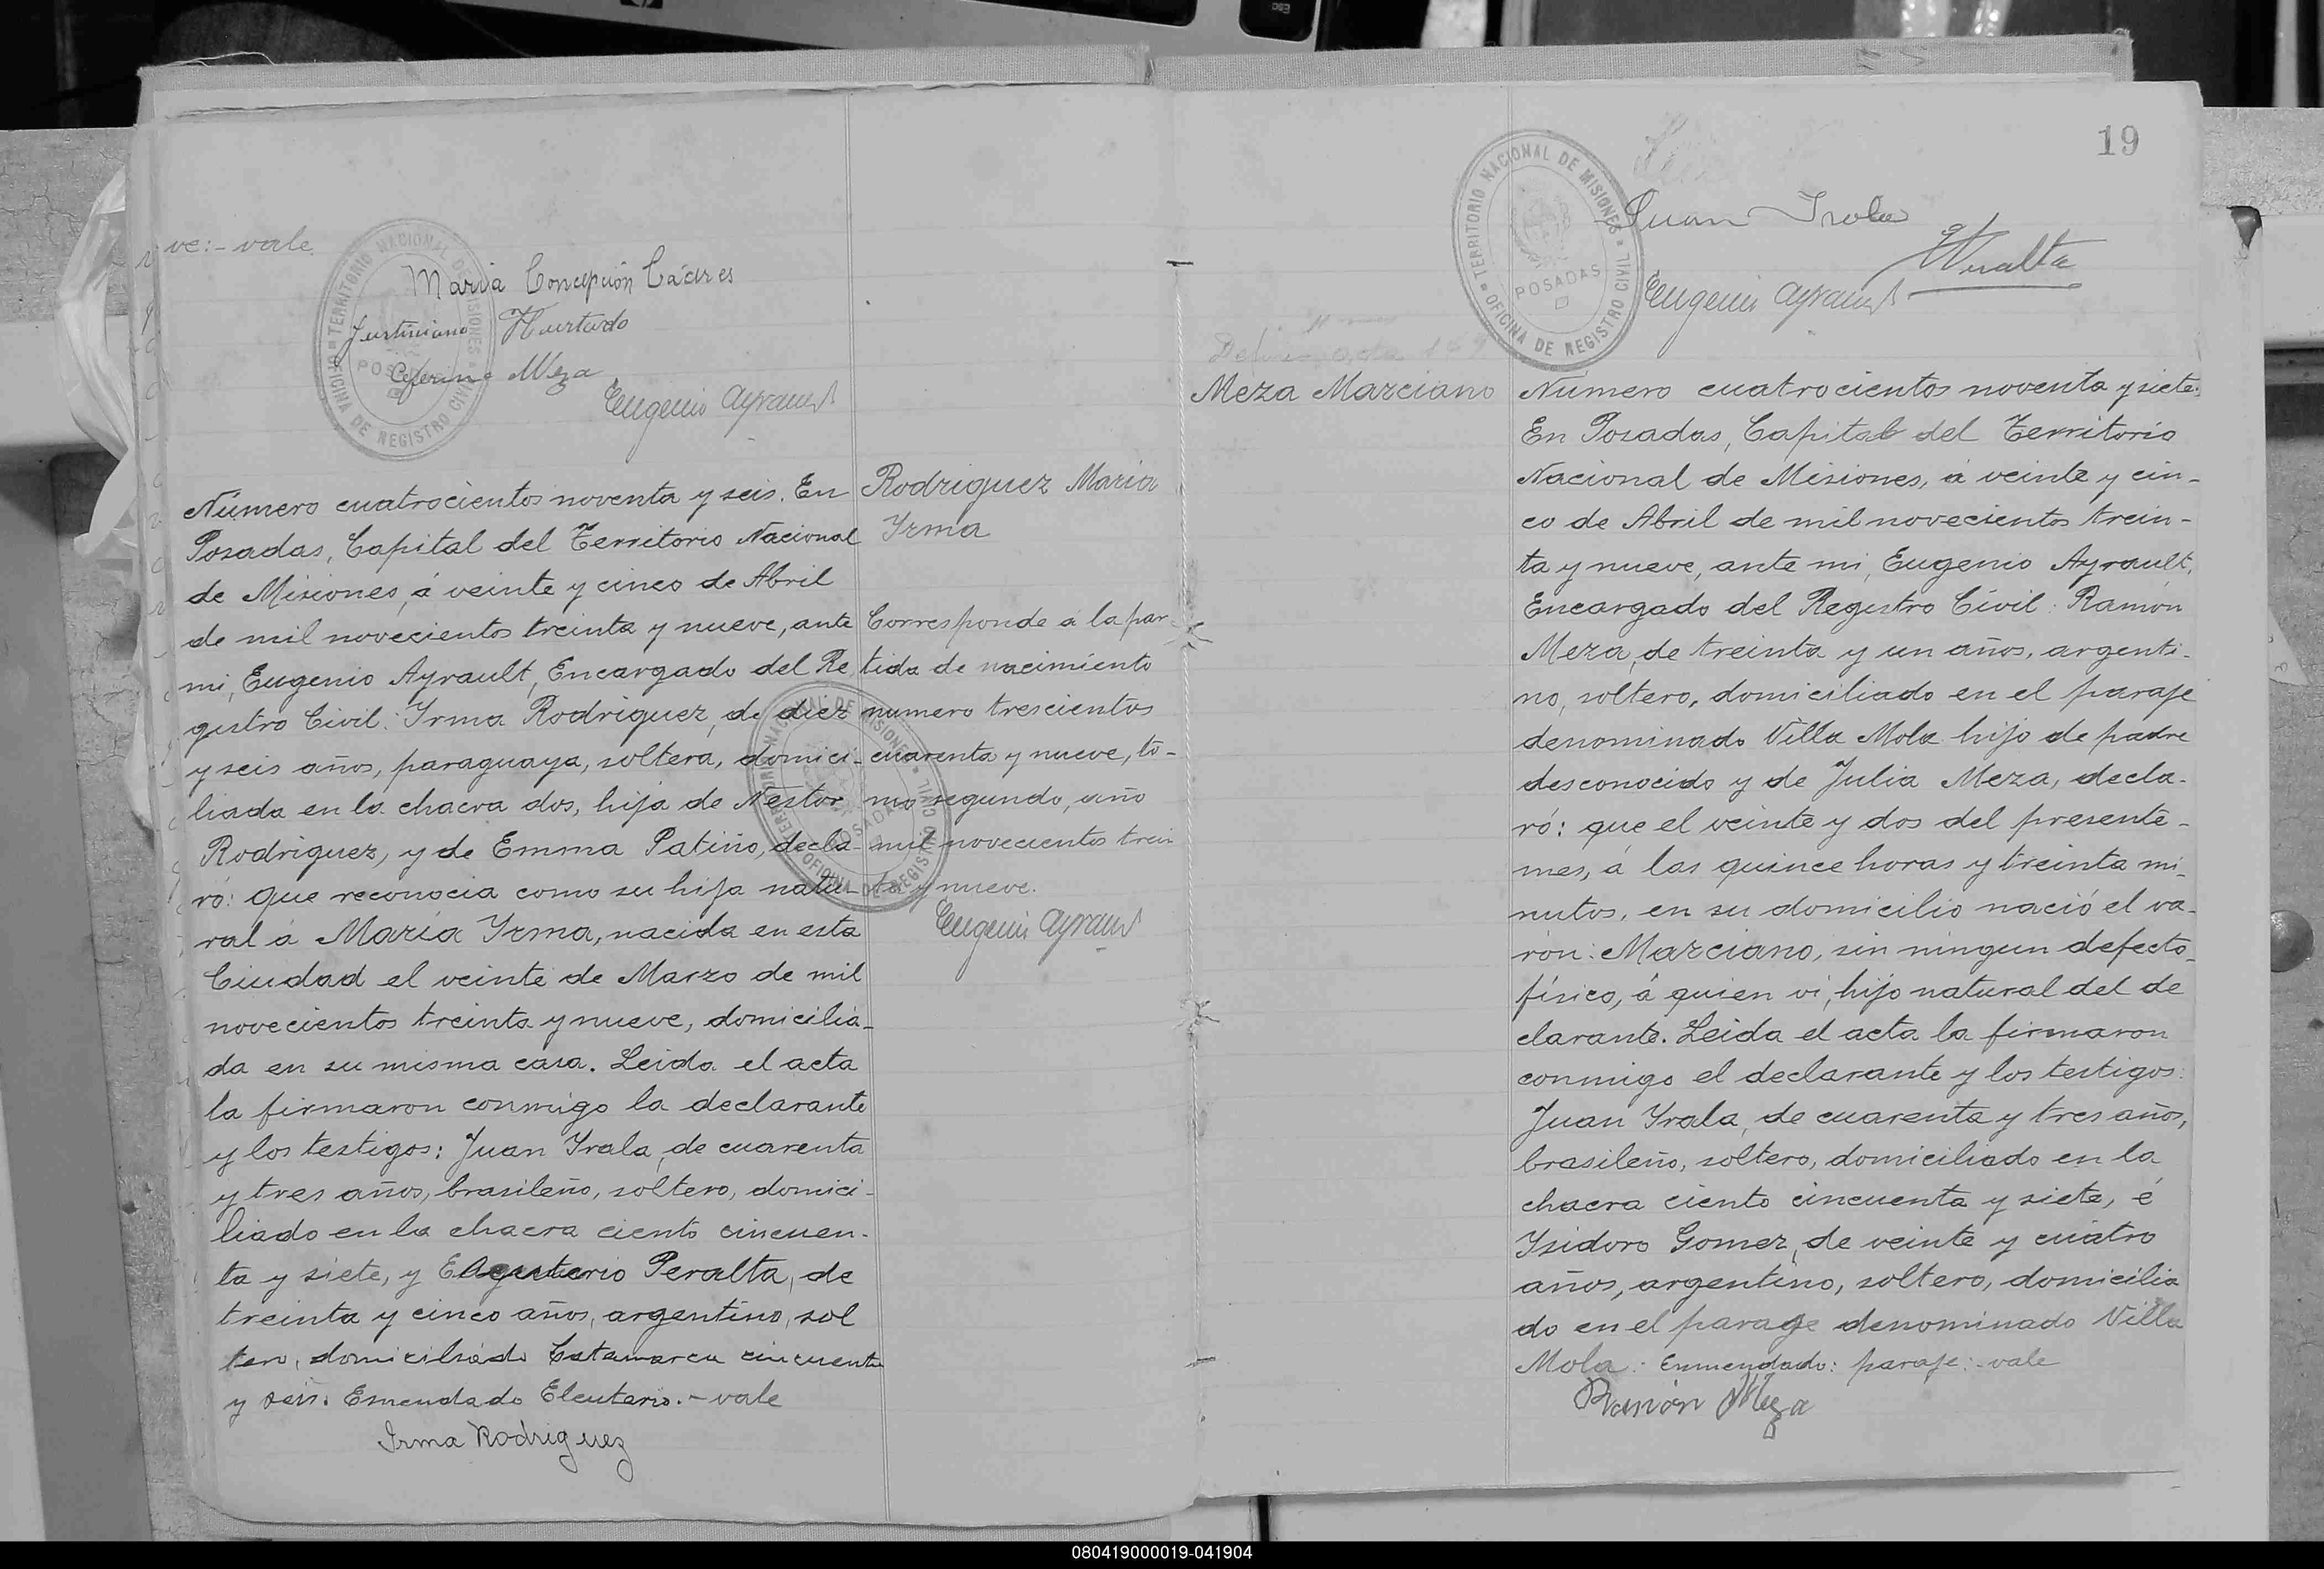 ve:- vale
TERRITORIO NACIONAL DE MISIONES
POSADAS
OFICINA DE REGISTRO CIVIL
Maria Concepción Cáceres
Justiniano Hurtado
Ceferino Meza
Eugenio Ayrault
Número cuatrocientos noventa y seis. En
Posadas, Capital del Territorio Nacional
de Misiones, á veinte y cinco de Abril
de mil novecientos treinta y nueve, ante
mi, Eugenio Ayrault, Encargado del Re
gistro Civil: Yrma Rodriguez, de diez
y seis años, paraguaya, soltera, domici-
liada en la chacra dos, hija de Nestor
Rodriguez, y de Emma Patiño, decla-
ró: que reconocia como su hija natu-
ral á María Yrma, nacida en esta
Ciudad el veinte de Marzo de mil
novecientos treinta y nueve, domicilia-
da en su misma casa. Leida el acta
la firmaron conmigo la declarante
y los testigos: Juan Yrala, de cuarenta
y tres años, brasileño, soltero, domici-
liado en la chacra ciento cincuen-
ta y siete, y Eleuterio Peralta, de
treinta y cinco años, argentino, sol
tero, domiciliado Catamarca cincuenta
y seis. Emendado Eleuterio.- vale
Irma Rodriguez
Rodriguez Maria
Yrma
Corresponde a la par
tida de nacimiento
numero trescientos
cuarenta y nueve, to-
mo segundo, año
mil novecientos trein
ta y nueve.
Eugenio Ayrault
TERRITORIO NACIONAL DE MISIONES
POSADAS
OFICINA DE REGISTRO CIVIL
19
TERRITORIO NACIONAL DE MISIONES
POSADAS
OFICINA DE REGISTRO CIVIL
Juan Irala
EPeralta
Eugenio Ayrault
Meza Marciano
Número cuatrocientos noventa y siete.
En Posadas, Capital del Territorio
Nacional de Misiones, á veinte y cin-
co de Abril de mil novecientos trein-
ta y nueve, ante mi, Eugenio Ayrault,
Encargado del Registro Civil: Ramón
Meza, de treinta y un años, argenti-
no, soltero, domiciliado en el paraje
denominado Villa Mola hijo de padre
desconocido y de Julia Meza, decla-
ró: que el veinte y dos del presente-
mes, á las quince horas y treinta mi-
nutos, en su domicilio nació el va-
rón: Marciano, sin ningun defecto-
físico, á quien vi, hijo natural del de
clarante. Leida el acta la firmaron
conmigo el declarante y los testigos:
Juan Yrala, de cuarenta y tres años,
brasileño, soltero, domiciliado en la
chacra ciento cincuenta y siete, é
Ysidoro Gomez, de veinte y cuatro
años, argentino, soltero, domicilia
do en el paraje denominado Villa
Mola.- Enmendado: paraje:- vale
Ramón Meza
080419000019-041904